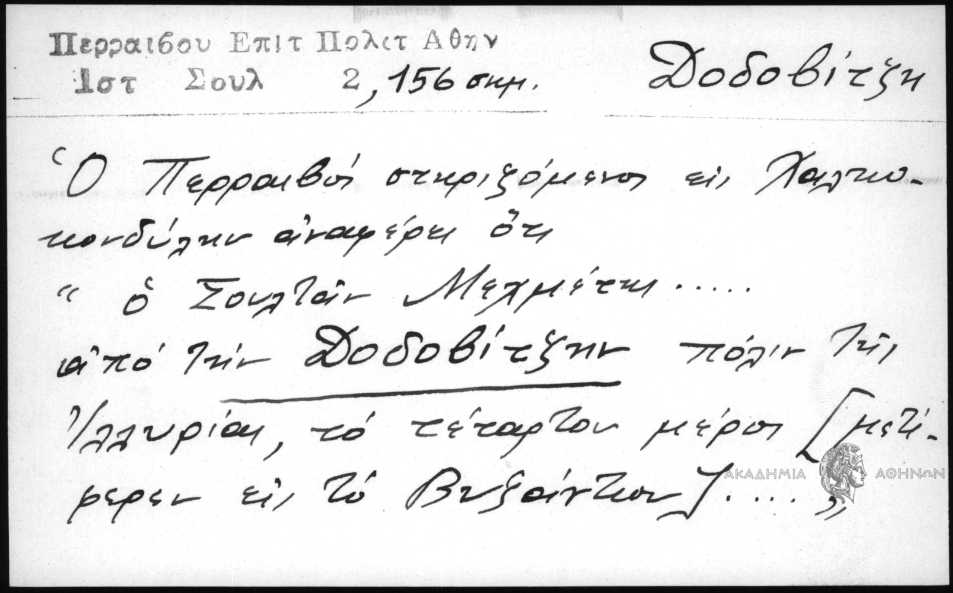 Περραιβου Επιτ Πολιτ Αθην
Ιστ Σουλ 2, 156 σημ.
Δοδοβίτζη
Ὁ Περραιβὸς στηριζόμενος εἰς Χαλκο-
κονδύλην ἀναφέρει ὅτι
“ ὁ Σουλτὰν Μεχμέτης .....
ἀπὸ τὴν Δοδοβίτζην πόλιν τῆς
Ἰλλυρίας, τὸ τέταρτον μέρος [μετέ-
φερεν εἰς τὸ Βυζάντιον] .... ”
ΑΚΑΔΗΜΙΑ ΑΘΗΝΩΝ